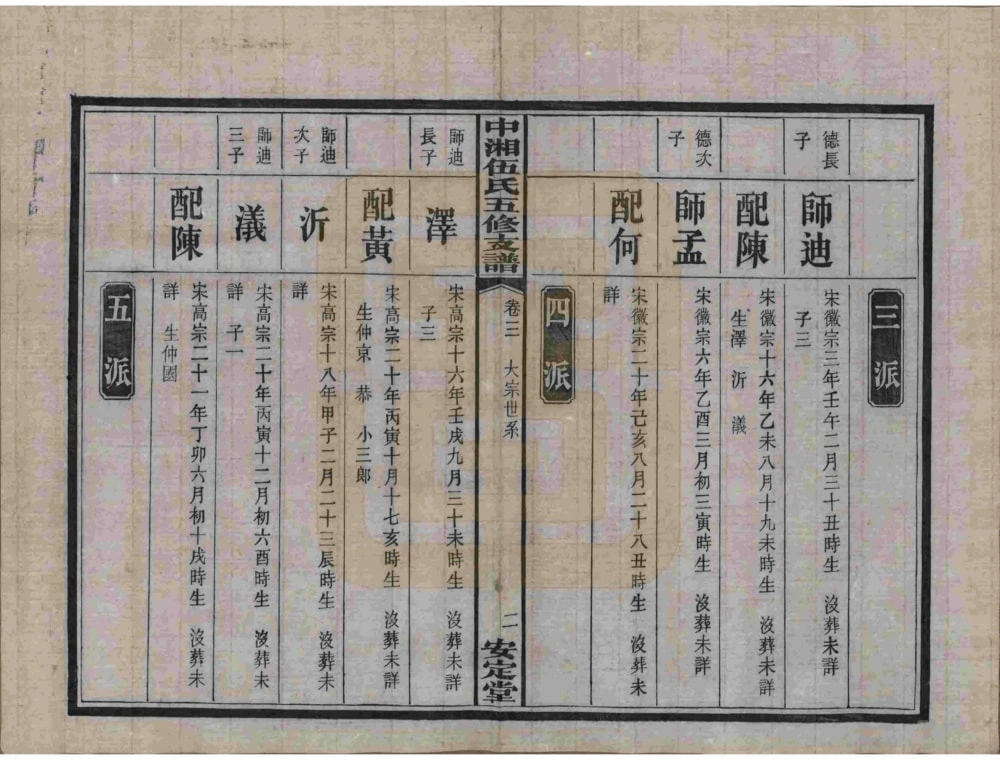 三派
德長子
師迪
宋徽宗三年壬午二月三十丑時生 沒葬未詳
子三
配陳
宋徽宗十六年乙未八月十九未時生 沒葬未詳
生澤 沂 議
德次子
師孟
宋徽宗六年乙酉三月初三寅時生 沒葬未詳
配何
宋徽宗二十年己亥八月二十八丑時生 沒葬未
詳
四派
中湘伍氏五修支譜
卷三 大宗世系
二
安定堂
師迪長子
澤
宋高宗十六年壬戌九月三十未時生 沒葬未詳
子三
配黃
宋高宗二十年丙寅十月十七亥時生 沒葬未詳
生仲京 恭 小三郎
師迪次子
沂
宋高宗十八年甲子二月二十三辰時生 沒葬未
詳
師迪三子
議
宋高宗二十年丙寅十二月初六酉時生 沒葬未
詳 子一
配陳
宋高宗二十一年丁卯六月初十戌時生 沒葬未
詳 生仲國
五派